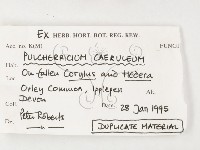 Ex HERB. HORT. BOT. REG. KEW.
Acc. no. K(M) FUNGI
PULCHERRICIUM CAERULEUM
Hab. On fallen Corylus and Hedera
Loc. Orley Common, Ipplepen
Devon
Date 28 Jan 1995
Coll. Peter Roberts
Det. — " —
DUPLICATE MATERIAL